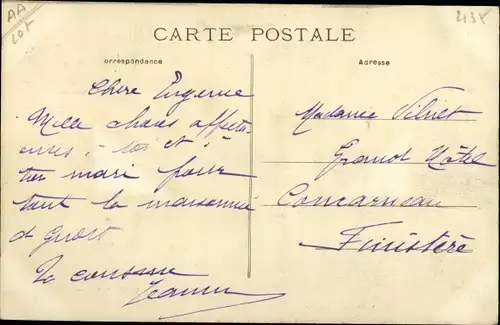 AA
2137
CARTE POSTALE
Correspondance
Adresse
Chère Eugenie
Mille choses affectu-
euses à toi et à
ton mari pour
tout la maisonnée
d
Ta cousine
Jeanne
Madame
Grand Hôtel
Concarneau
Finistère